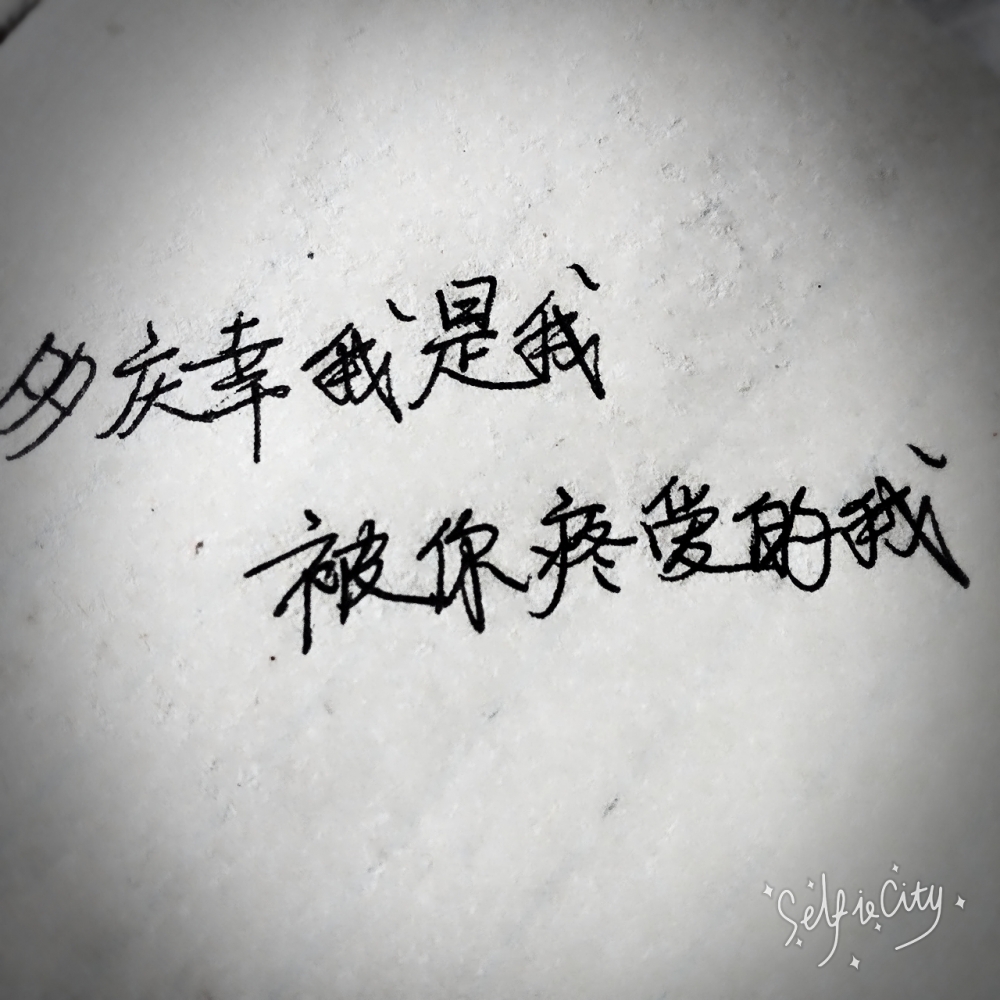 多庆幸我是我
被你疼爱的我
SelfieCity